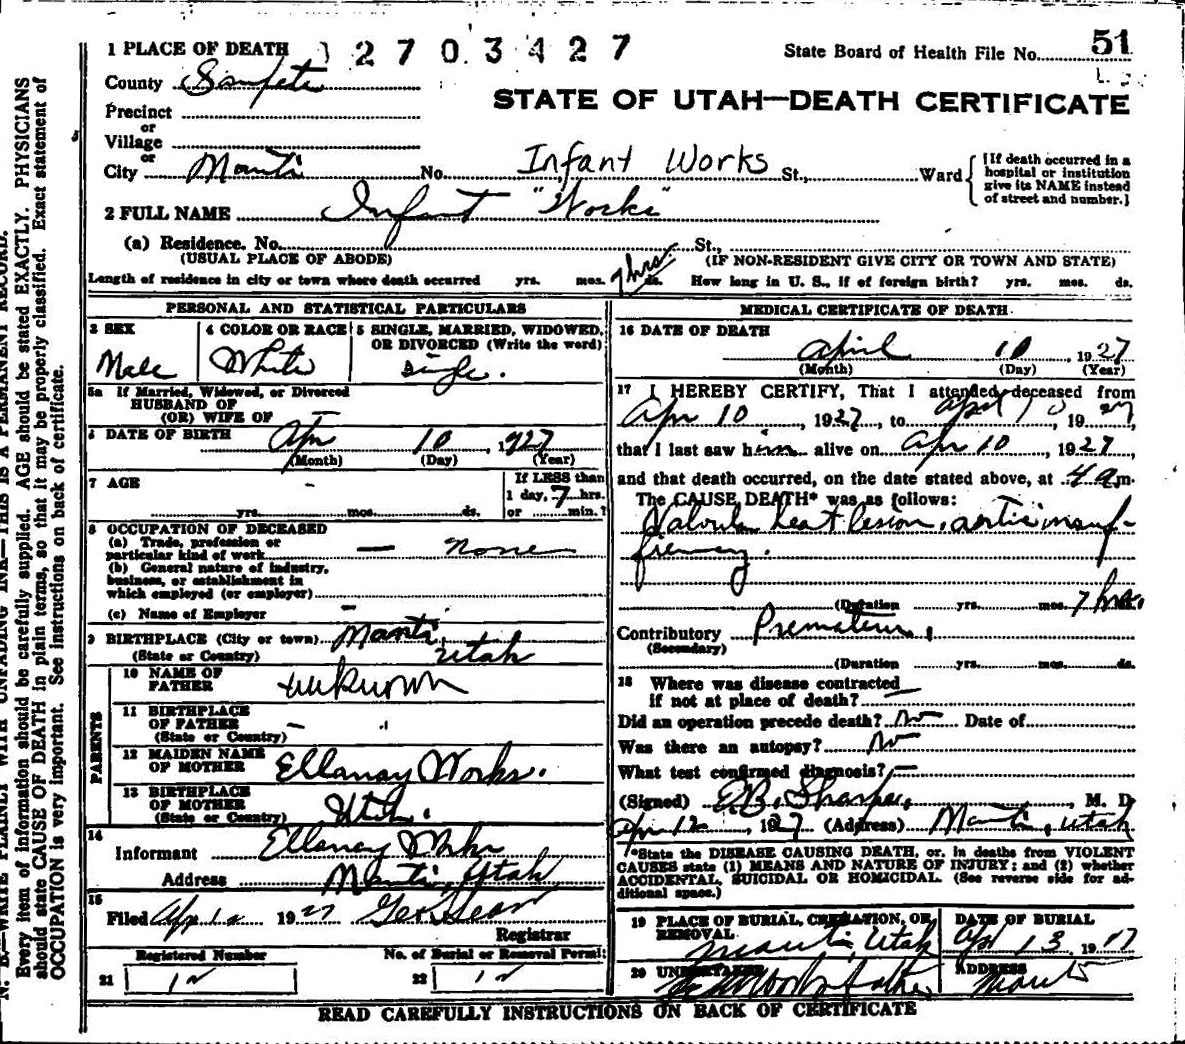 1 PLACE OF DEATH 2 7 0 3 4 2 7
State Board of Health File No. 51
County Sanpete
STATE OF UTAH—DEATH CERTIFICATE
Precinct
or
Village
or
City Manti No. Infant Works St., Ward
[If death occurred in a
hospital or institution
give its NAME instead
of street and number.]
2 FULL NAME Infant "Works"
(a) Residence. No. St.,
(USUAL PLACE OF ABODE) (IF NON-RESIDENT GIVE CITY OR TOWN AND STATE)
Length of residence in city or town where death occurred yrs. mos. 7 hrs. ds. How long in U. S., if of foreign birth? yrs. mos. ds.
PERSONAL AND STATISTICAL PARTICULARS
3 SEX
Male
4 COLOR OR RACE
White
5 SINGLE, MARRIED, WIDOWED,
OR DIVORCED (Write the word)
single.
5a If Married, Widowed, or Divorced
HUSBAND OF
(OR) WIFE OF
6 DATE OF BIRTH Apr 10, 1927
(Month) (Day) (Year)
7 AGE
yrs. mos. ds.
If LESS than
1 day, 7 hrs.
or min.?
8 OCCUPATION OF DECEASED
(a) Trade, profession or
particular kind of work — none
(b) General nature of industry,
business, or establishment in
which employed (or employer)
(c) Name of Employer —
9 BIRTHPLACE (City or town) Manti,
(State or Country) Utah
PARENTS
10 NAME OF
FATHER unknown
11 BIRTHPLACE
OF FATHER —
(State or Country)
12 MAIDEN NAME
OF MOTHER Ellanay Works.
13 BIRTHPLACE
OF MOTHER
(State or Country) Utah.
14
Informant Ellanay Works
Address Manti, Utah
15
Filed Apr 12 1927 Geo
Registrar
Registered Number No. of Burial or Removal Permit
21 12 22 12
MEDICAL CERTIFICATE OF DEATH
16 DATE OF DEATH
April 10, 1927
(Month) (Day) (Year)
17 I HEREBY CERTIFY, That I attended deceased from
Apr 10, 1927, to April 10 1927,
that I last saw him alive on Apr 10, 1927,
and that death occurred, on the date stated above, at 4 a m.
The CAUSE DEATH* was as follows:
Valvular heart lesion, aortic insuf-
ficiency.
(Duration yrs. mos. 7 hrs.
Contributory Premature.
(Secondary)
(Duration yrs. mos. ds.
18 Where was disease contracted
if not at place of death? —
Did an operation precede death? No Date of
Was there an autopsy? No
What test confirmed diagnosis? —
(Signed) , M. D.
Apr 12, 1927 (Address) Manti, Utah
*State the DISEASE CAUSING DEATH, or, in deaths from VIOLENT
CAUSES state (1) MEANS AND NATURE OF INJURY; and (2) whether
ACCIDENTAL, SUICIDAL OR HOMICIDAL. (See reverse side for ad-
ditional space.)
19 PLACE OF BURIAL, CREMATION, OR
REMOVAL
Manti, Utah
DATE OF BURIAL
Apl 13 1917
20 UNDERTAKER
ADDRESS
Manti
READ CAREFULLY INSTRUCTIONS ON BACK OF CERTIFICATE
N. B.—WRITE PLAINLY WITH UNFADING INK—THIS IS A PERMANENT RECORD.
Every item of information should be carefully supplied. AGE should be stated EXACTLY. PHYSICIANS
should state CAUSE OF DEATH in plain terms, so that it may be properly classified. Exact statement of
OCCUPATION is very important. See instructions on back of certificate.